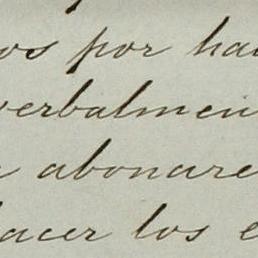 os por ha
verbalmen
abonare
acer los e